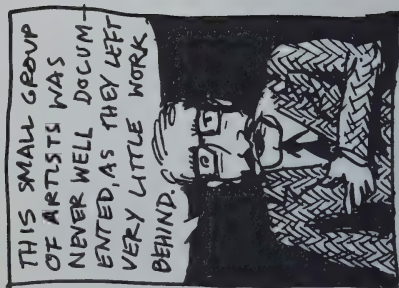 THIS SMALL GROUP
OF ARTISTS WAS
NEVER WELL DOCUM-
ENTED, AS THEY LEFT
VERY LITTLE WORK
BEHIND.